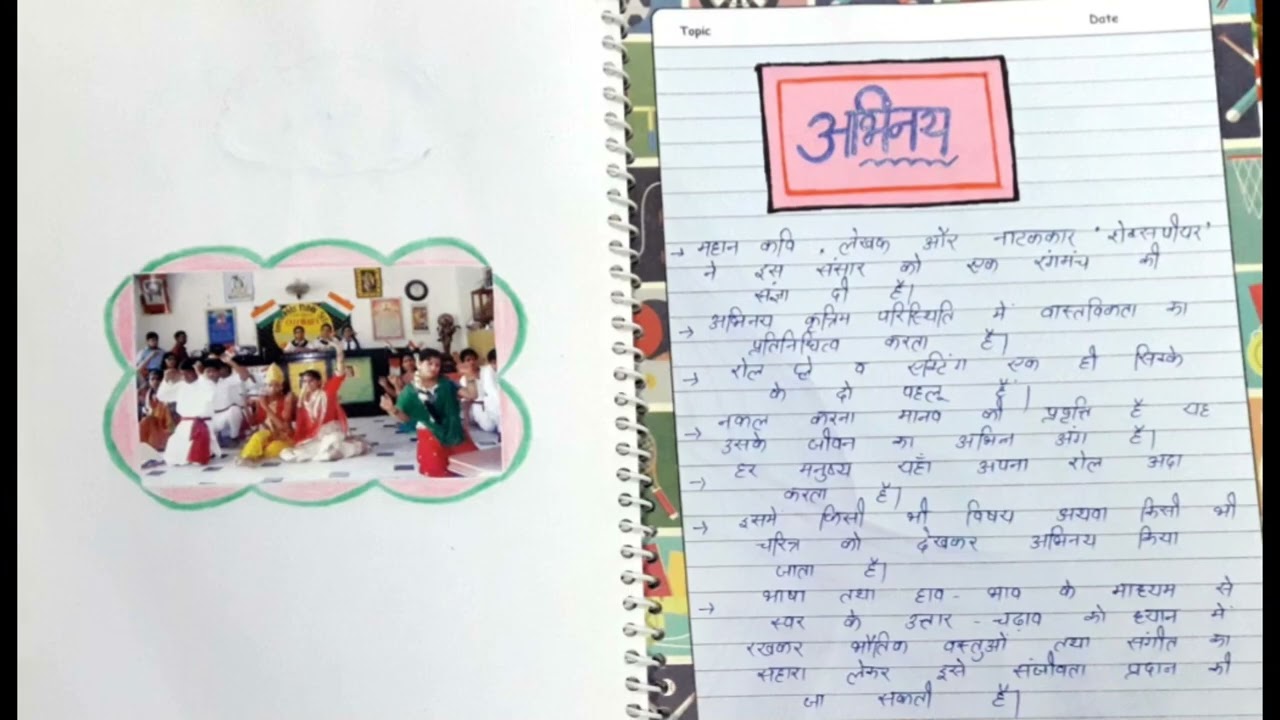 Topic
Date
अभिनय
→ महान कवि, लेखक और नाटककार 'शेक्सपीयर'
ने इस संसार को एक रंगमंच की
संज्ञा दी है।
→ अभिनय कृत्रिम परिस्थिति में वास्तविकता का
प्रतिनिधित्व करता है।
→ रोल प्ले व एक्टिंग एक ही सिक्के
के दो पहलू हैं।
→ नकल करना मानव की प्रवृत्ति है यह
उसके जीवन का अभिन्न अंग है।
→ हर मनुष्य यहाँ अपना रोल अदा
करता है।
→ इसमे किसी भी विषय अथवा किसी भी
चरित्र को देखकर अभिनय किया
जाता है।
→ भाषा तथा हाव - भाव के माध्यम से
स्वर के उत्तार - चढ़ाव को ध्यान में
रखकर भौतिक वस्तुओं तथा संगीत का
सहारा लेकर इसे संजीवता प्रदान की
जा सकती है।